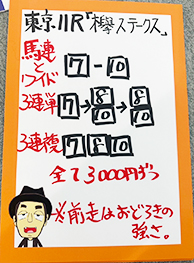 東京11R「欅ステークス」
馬連とワイド 7-10
3連単 7→8/10→8/10
3連複 7 8 10
全て3000円ずつ
※前走はおどろきの
強さ。